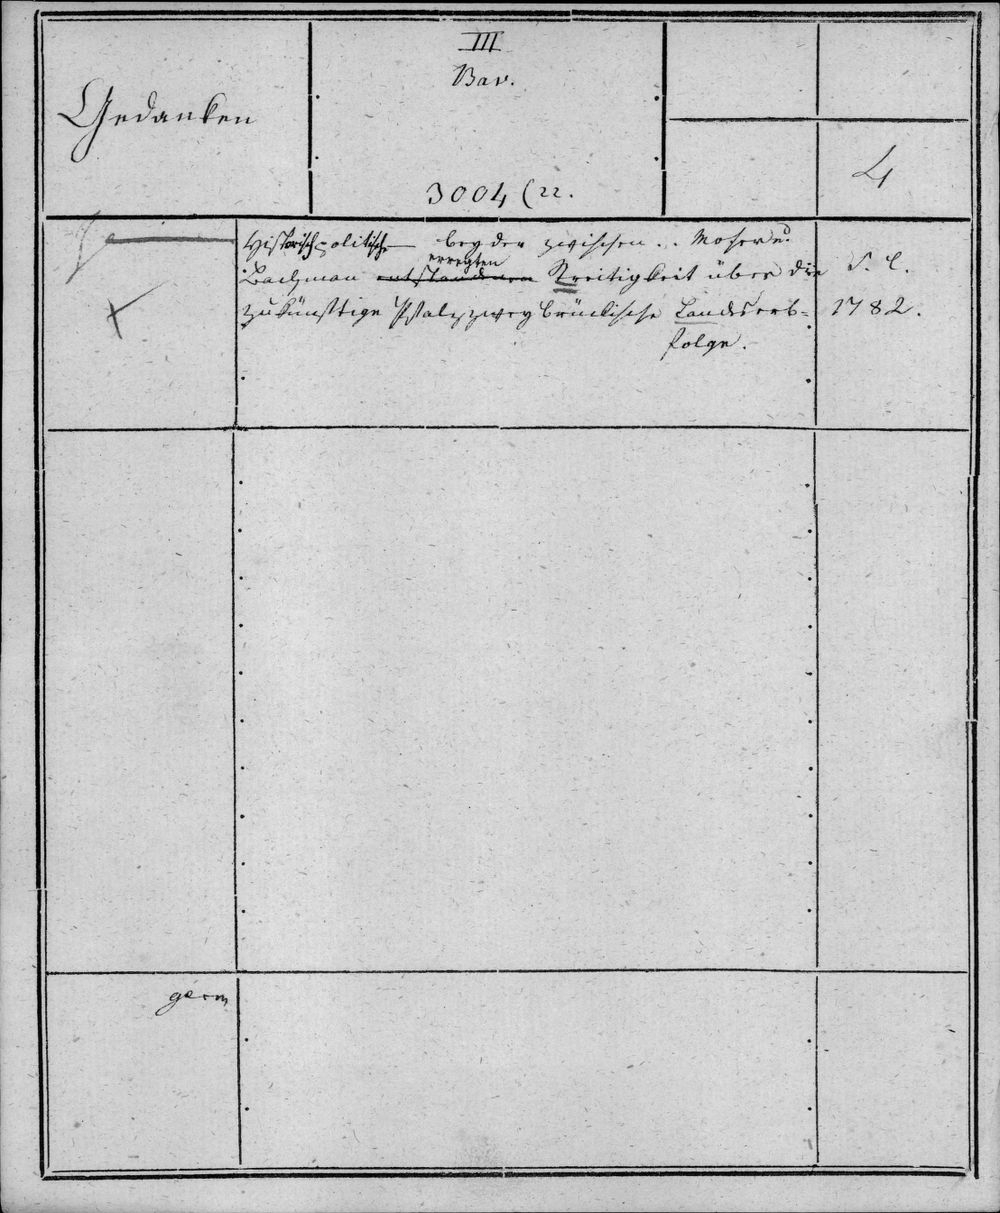 Gedanken
III
Bav.
3004 (22.
4
Historischpolitische — bey der zwischen .. Moser u.
Bachman entstandenen erregten Streitigkeit über die
zukünftige Pfalzzweybrückische Landserb-
folge.
S. l.
1782.
germ